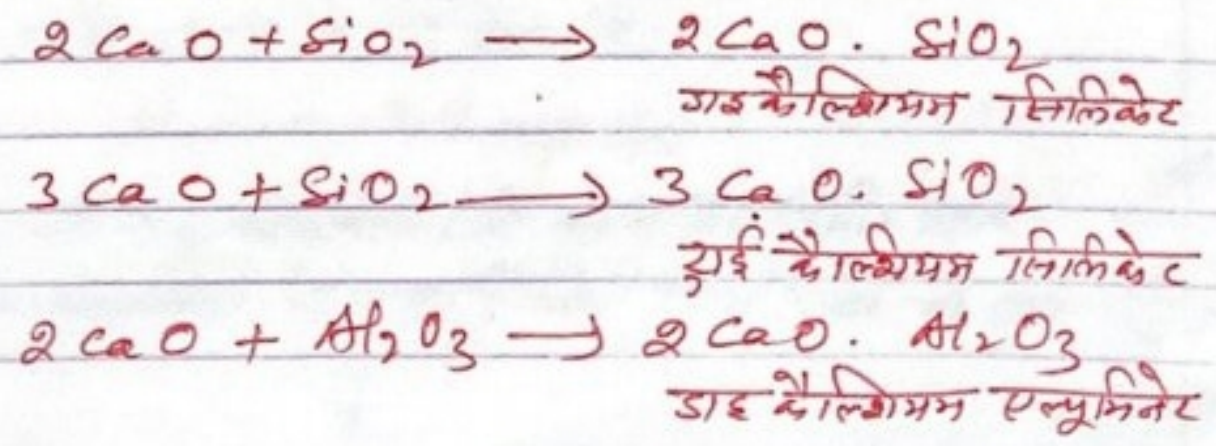 2 CaO + SiO₂ ⟶ 2 CaO. SiO₂
डाइकैल्शियम सिलिकेट
3 CaO + SiO₂ ⟶ 3 CaO. SiO₂
ट्राई कैल्शियम सिलिकेट
2 CaO + Al₂O₃ ⟶ 2 CaO. Al₂O₃
डाइ कैल्शियम एल्यूमिनेट